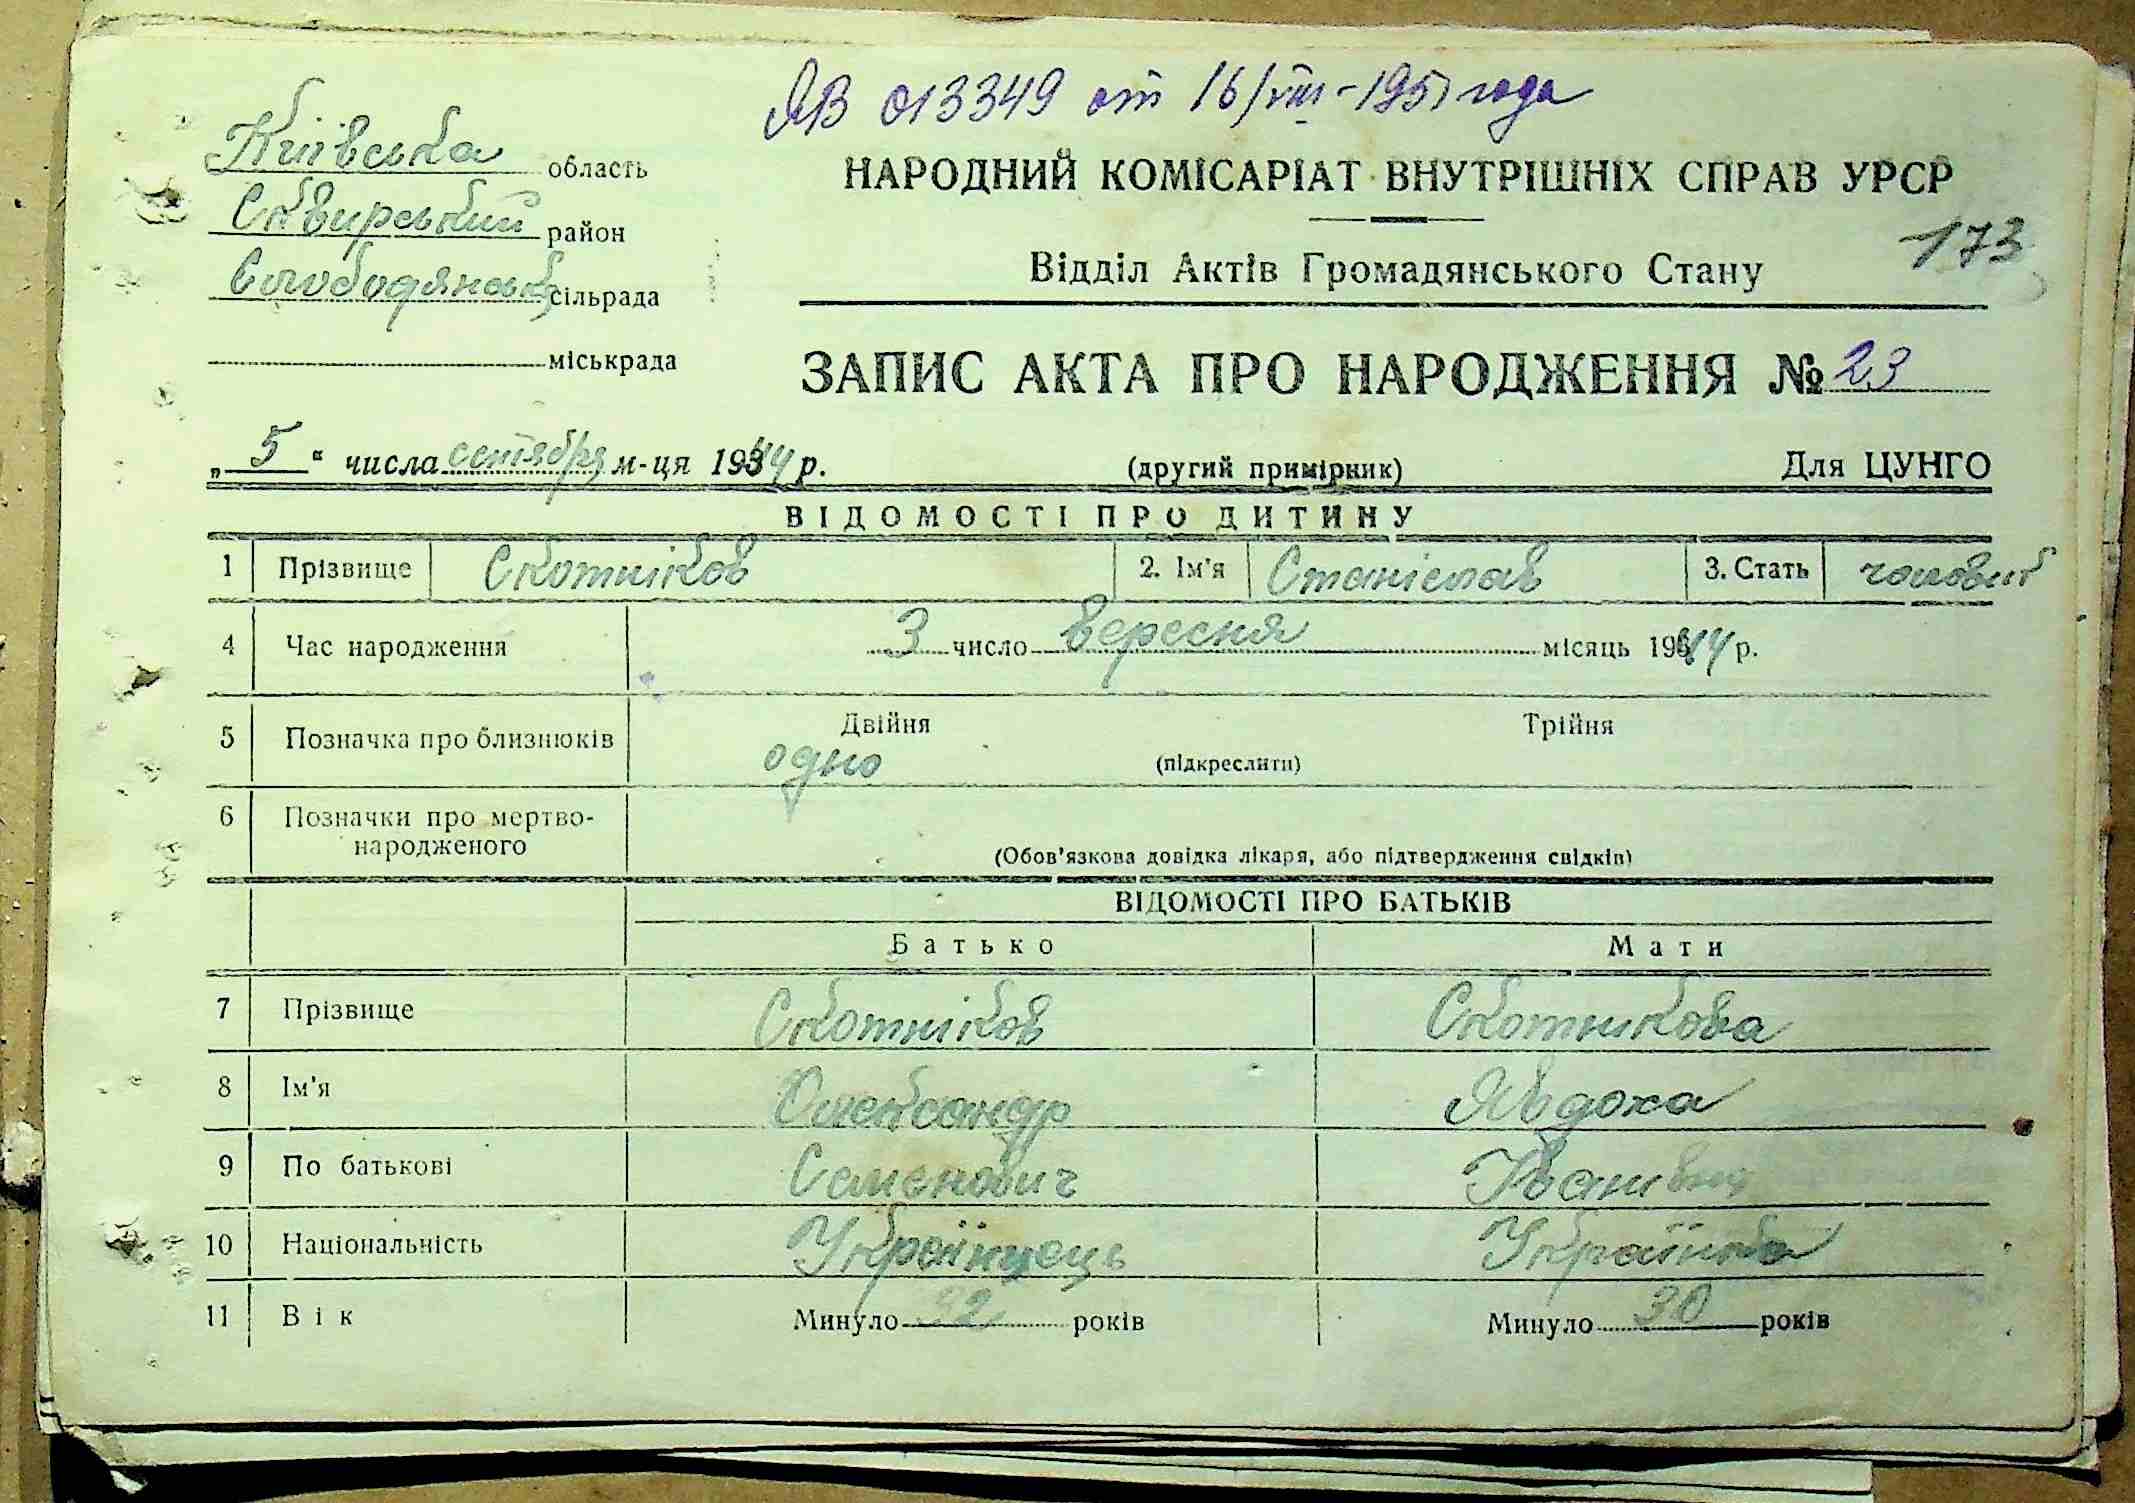 ЯВ 013349 от 16/VIII-195 года
Київська область
Сквирський район
Слободянська сільрада
міськрада
НАРОДНИЙ КОМІСАРІАТ ВНУТРІШНІХ СПРАВ УРСР
173
Відділ Актів Громадянського Стану
ЗАПИС АКТА ПРО НАРОДЖЕННЯ № 23
„ 5 “ числа сентября м-ця 1944 р.
(другий примірник)
Для ЦУНГО
ВІДОМОСТІ ПРО ДИТИНУ
1 Прізвище Скотніков 2. Ім'я Станіслав 3. Стать
4 Час народження 3 число вересня місяць 1944 р.
5 Позначка про близнюків Двійня Трійня
одно (підкреслити)
6 Позначки про мертво-
народженого
(Обов'язкова довідка лікаря, або підтвердження свідків)
ВІДОМОСТІ ПРО БАТЬКІВ
Батько Мати
7 Прізвище Скотніков Скотникова
8 Ім'я Олександр Явдоха
9 По батькові Семенович Іванівна
10 Національність Українець Українка
11 Вік Минуло 32 років Минуло 30 років